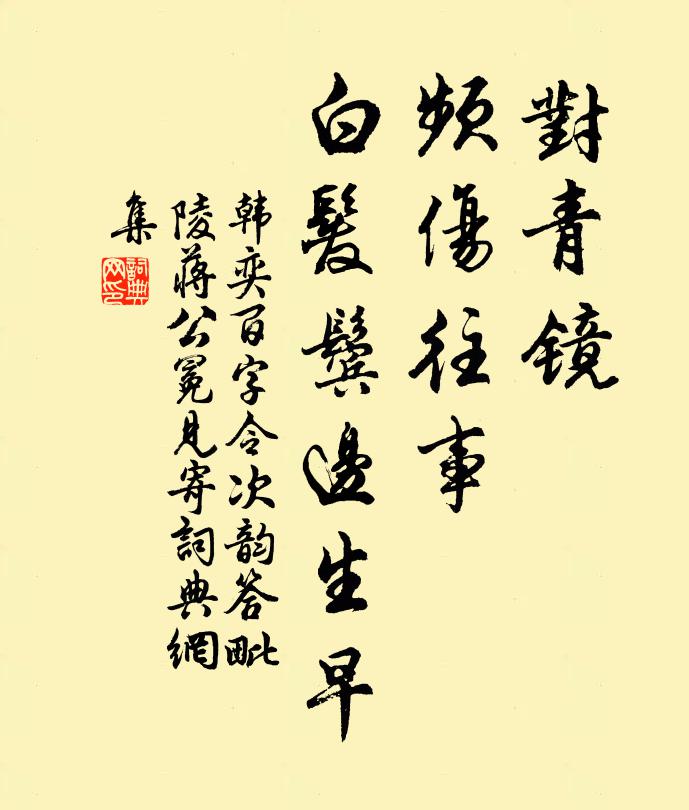 對青鏡
頻傷往事
白髮鬢邊生早
韩奕百字令次韵答毗
陵蒋公冕見寄詞典網
集
詞典
网印